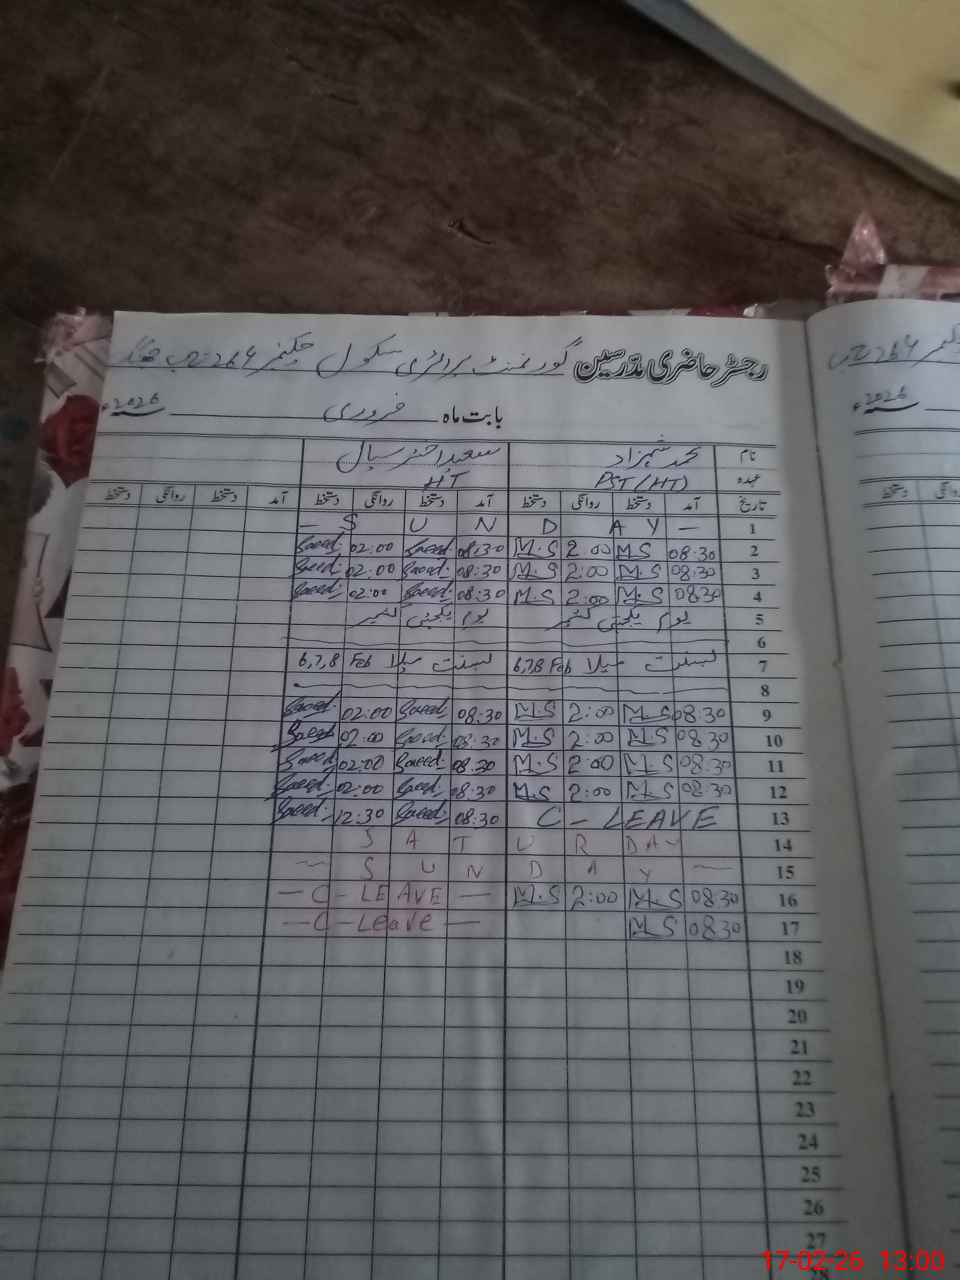 رجسٹر حاضری مدرسین گورنمنٹ پرائمری سکول چکنمبر 264 ج ب جھنگ
بابت ماہ فروری 2026ء
نام محمد شہزاد سعید اختر سیال
عہدہ PST (HT) HT
تاریخ آمد دستخط روانگی دستخط آمد دستخط روانگی دستخط آمد دستخط روانگی دستخط
1 — S U N D A Y —
2 08:30 M.S 2:00 M.S 08:30 Saeed 02:00 Saeed
3 08:30 M.S 2:00 M.S 08:30 Saeed 02:00 Saeed
4 08:30 M.S 2:00 M.S 08:30 Saeed 02:00 Saeed
5 یوم یکجہتی کشمیر یوم یکجہتی کشمیر
6
7 بسنت میلا 6,7,8 Feb بسنت میلا 6,7,8 Feb
8
9 08:30 M.S 2:00 M.S 08:30 Saeed 02:00 Saeed
10 08:30 M.S 2:00 M.S 08:30 Saeed 02:00 Saeed
11 08:30 M.S 2:00 M.S 08:30 Saeed 02:00 Saeed
12 08:30 M.S 2:00 M.S 08:30 Saeed 02:00 Saeed
13 C - LEAVE 08:30 Saeed 12:30 Saeed
14 S A T U R D A Y
15 — S U N D A Y —
16 08:30 M.S 2:00 M.S — C - LEAVE —
17 08:30 M.S — C - Leave —
18
19
20
21
22
23
24
25
26
27
2026ء
دستخط
17-02-26 13:00